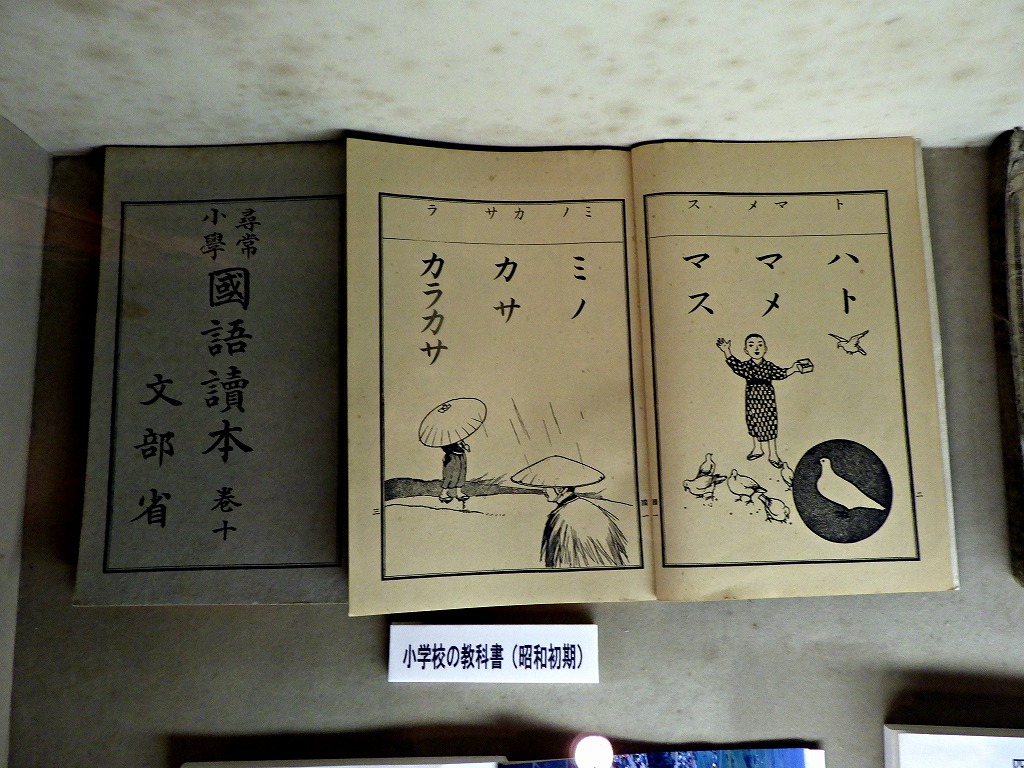 尋常
小學
國語讀本 卷十
文部省
ト マメ ス
ハト
マメ
マス
二
ミノ カサ ラ
ミノ
カサ
カラカサ
三
小学校の教科書（昭和初期）